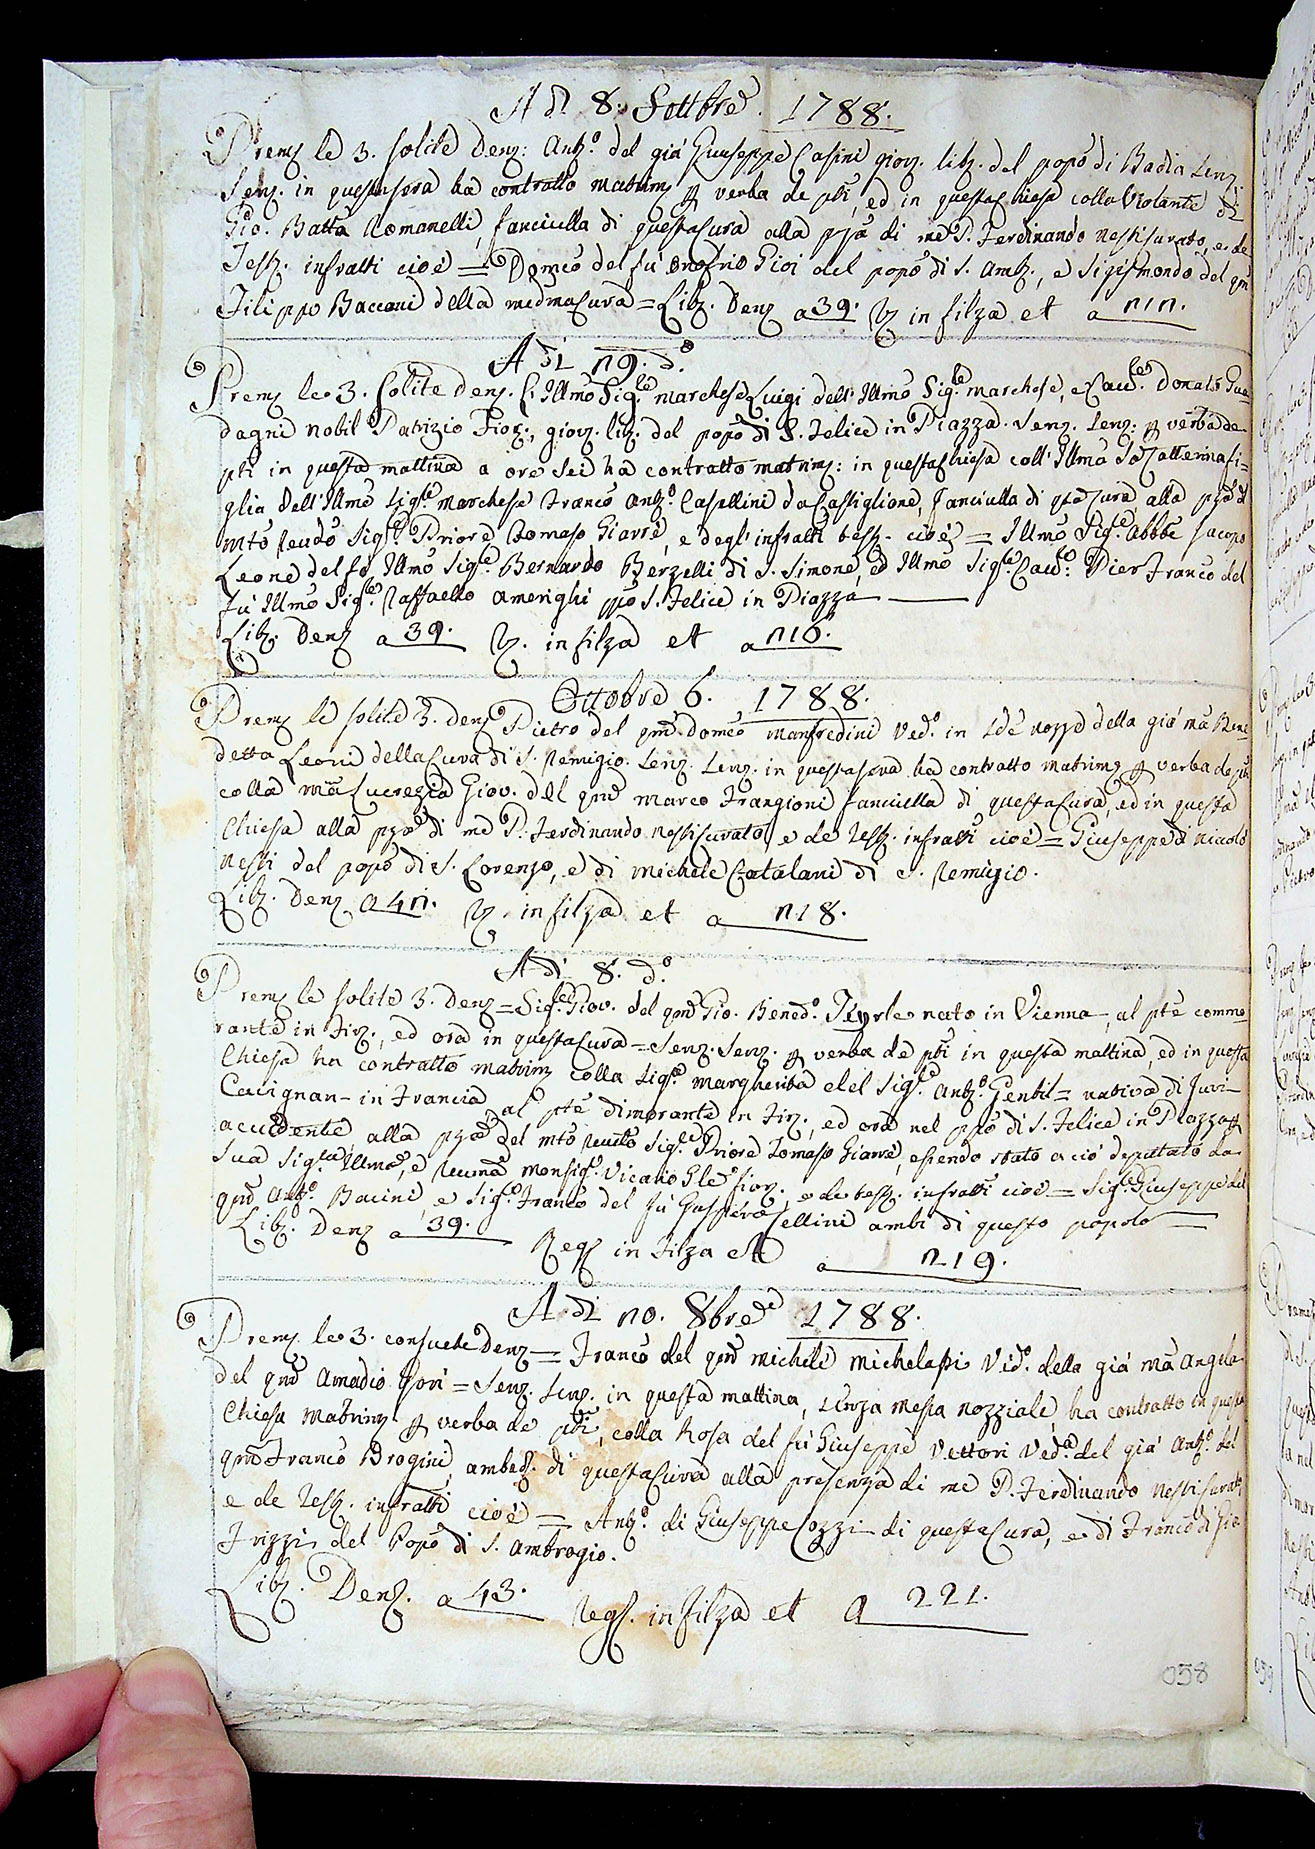 A dì 8. Settbre. 1788.
Prem. le 3. solite Denz: Ant.º del già Giuseppe Casini giov. lib. del popº di Badia Lenz.
Senz. in questa sera ha contratto matrim. p verba de pñti, ed in questa Chiesa colla Violante di
Gio. Batta Romanelli, fanciulla di questa Cura alla pza di me P. Ferdinando Nesti Curato, e de
Test. infratti cioè = Domco del fù Onofrio Gioi del popº di S. Amb., e Sigismondo del qm
Filippo Baccani della medma Cura = Lib. Denz a 39. in filza et a
A dì 19. dº
Prem. le 3. solite Denz. L'Illmo Sigre Marchese Luigi dell'Illmo Sigre Marchese, e Cavre Donato Gua=
dagni Nobil Patrizio Fior., giov. lib. del popº di S. Felice in Piazza. Senz. Lenz. p verba de
pñti in questa mattina a ore sei ha contratto matrim: in questa Chiesa coll'Illma Caterina fi=
glia dell'Illmo Sigre Marchese Franco Ant.º Casellini da Castiglione, fanciulla di qta Cura, alla pza d
Mto Revdo Sigre Priore Tomaso Giarrè, e degl'infratti test. cioè = Illmo Sigre Abbte Jacopo
Leone del fù Illmo Sigre Bernardo Berzelli di S. Simone, ed Illmo Sigre Cavre Pier Franco del
fù Illmo Sigre Raffaello Amerighi ppº S. Felice in Piazza
Lib. Denz a 39. in filza et a
Ottobre 6. 1788.
Prem. le solite 3. denz Pietro del qm Domco Manfredini Vedº in 2de nozze della già Ma Bene=
detta Leoni della Cura di S. Remigio. Senz. Lenz. in questa sera ha contratto matrim p verba de pñti
colla Ma Lucrezia Giov. del qm Marco Frangioni fanciulla di questa Cura, ed in questa
Chiesa alla pza di me P. Ferdinando Nesti Curato, e de Test. infratti cioè = Giuseppe di Niccolò
Nesti del popº di S. Lorenzo, e di Michele Catalani di S. Remigio.
Lib. Denz a 41. in filza et a 218.
A dì 8. dº
Prem. le solite 3. Denz = Sigre Giov. del qm Gio. Bened.º Teyrle nato in Vienna, al pte commo=
rante in Fir., ed ora in questa Cura = Senz. Senz. p verba de pñti in questa mattina, ed in questa
Chiesa ha contratto matrim colla Sigra Margherita del Sigre Ant.º Gentil = nativa di Juvi=
Carignan = in Francia, al pte dimorante in Fir., ed ora nel ppº di S. Felice in Piazza p
accidente, alla pza del Mto Revdo Sigre Priore Tomaso Giarrè, essendo stato a ciò deputato da
Sua Sigria Illma, e Revma Monsigre Vicario Gle Fior., e de test. infratti cioè = Sigre Giuseppe del
qm Ant.º Bacini, e Sigre Franco del fù Gaspero Cellini ambi di questo popolo
Lib. Denz a 39. Reg in Filza et a 219.
A dì 10. 8bre 1788.
Prem. le 3. consuete Denz = Franco del qm Michele Michelassi Vedº della già Ma Angela
del qm Amadio Gori = Senz. Lenz. in questa mattina, senza messa nozziale, ha contratto in questa
Chiesa Matrim p verba de pñti, colla Rosa del fù Giuseppe Vettori Veda del già Ant.º del
qm Franco Brogini, ambed. di questa Cura alla presenza di me P. Ferdinando Nesti Curato
e de Test. infratti cioè = Ant.º di Giuseppe Cozzi di questa Cura, e di Franco di Gio.
Frizzi del Popº di S. Ambrogio.
Lib. Denz. a 43. Reg. in filza et a 221.
058